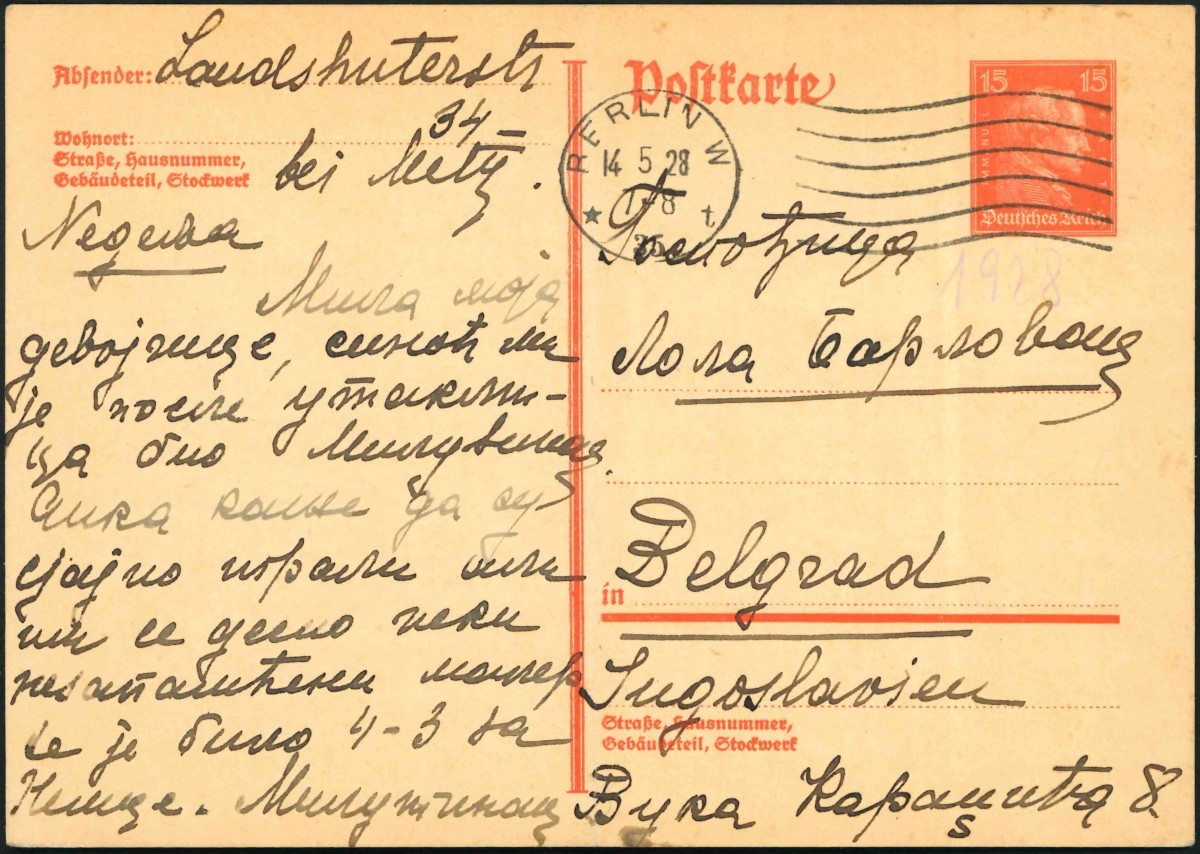 Absender: Landshuterstr
34
Wohnort:
Straße, Hausnummer,
Gebäudeteil, Stockwerk
bei Metz.
Недеља
Мила моја
девојчице, синоћ ми
је после утакми-
ца био Милутинац.
каже да су
сјајно играли али
им се десио неки
малер
те је било 4-3 за
Немце. Милутинац
Postkarte
BERLIN W
14 5 28
7-8
* t
35
15 15
IMMANUEL
Deutsches Reich
1928
Госпођица
Лола Барловац
in Belgrad
Jugoslavien
Straße, Hausnummer,
Gebäudeteil, Stockwerk
Вука Караџића 8.